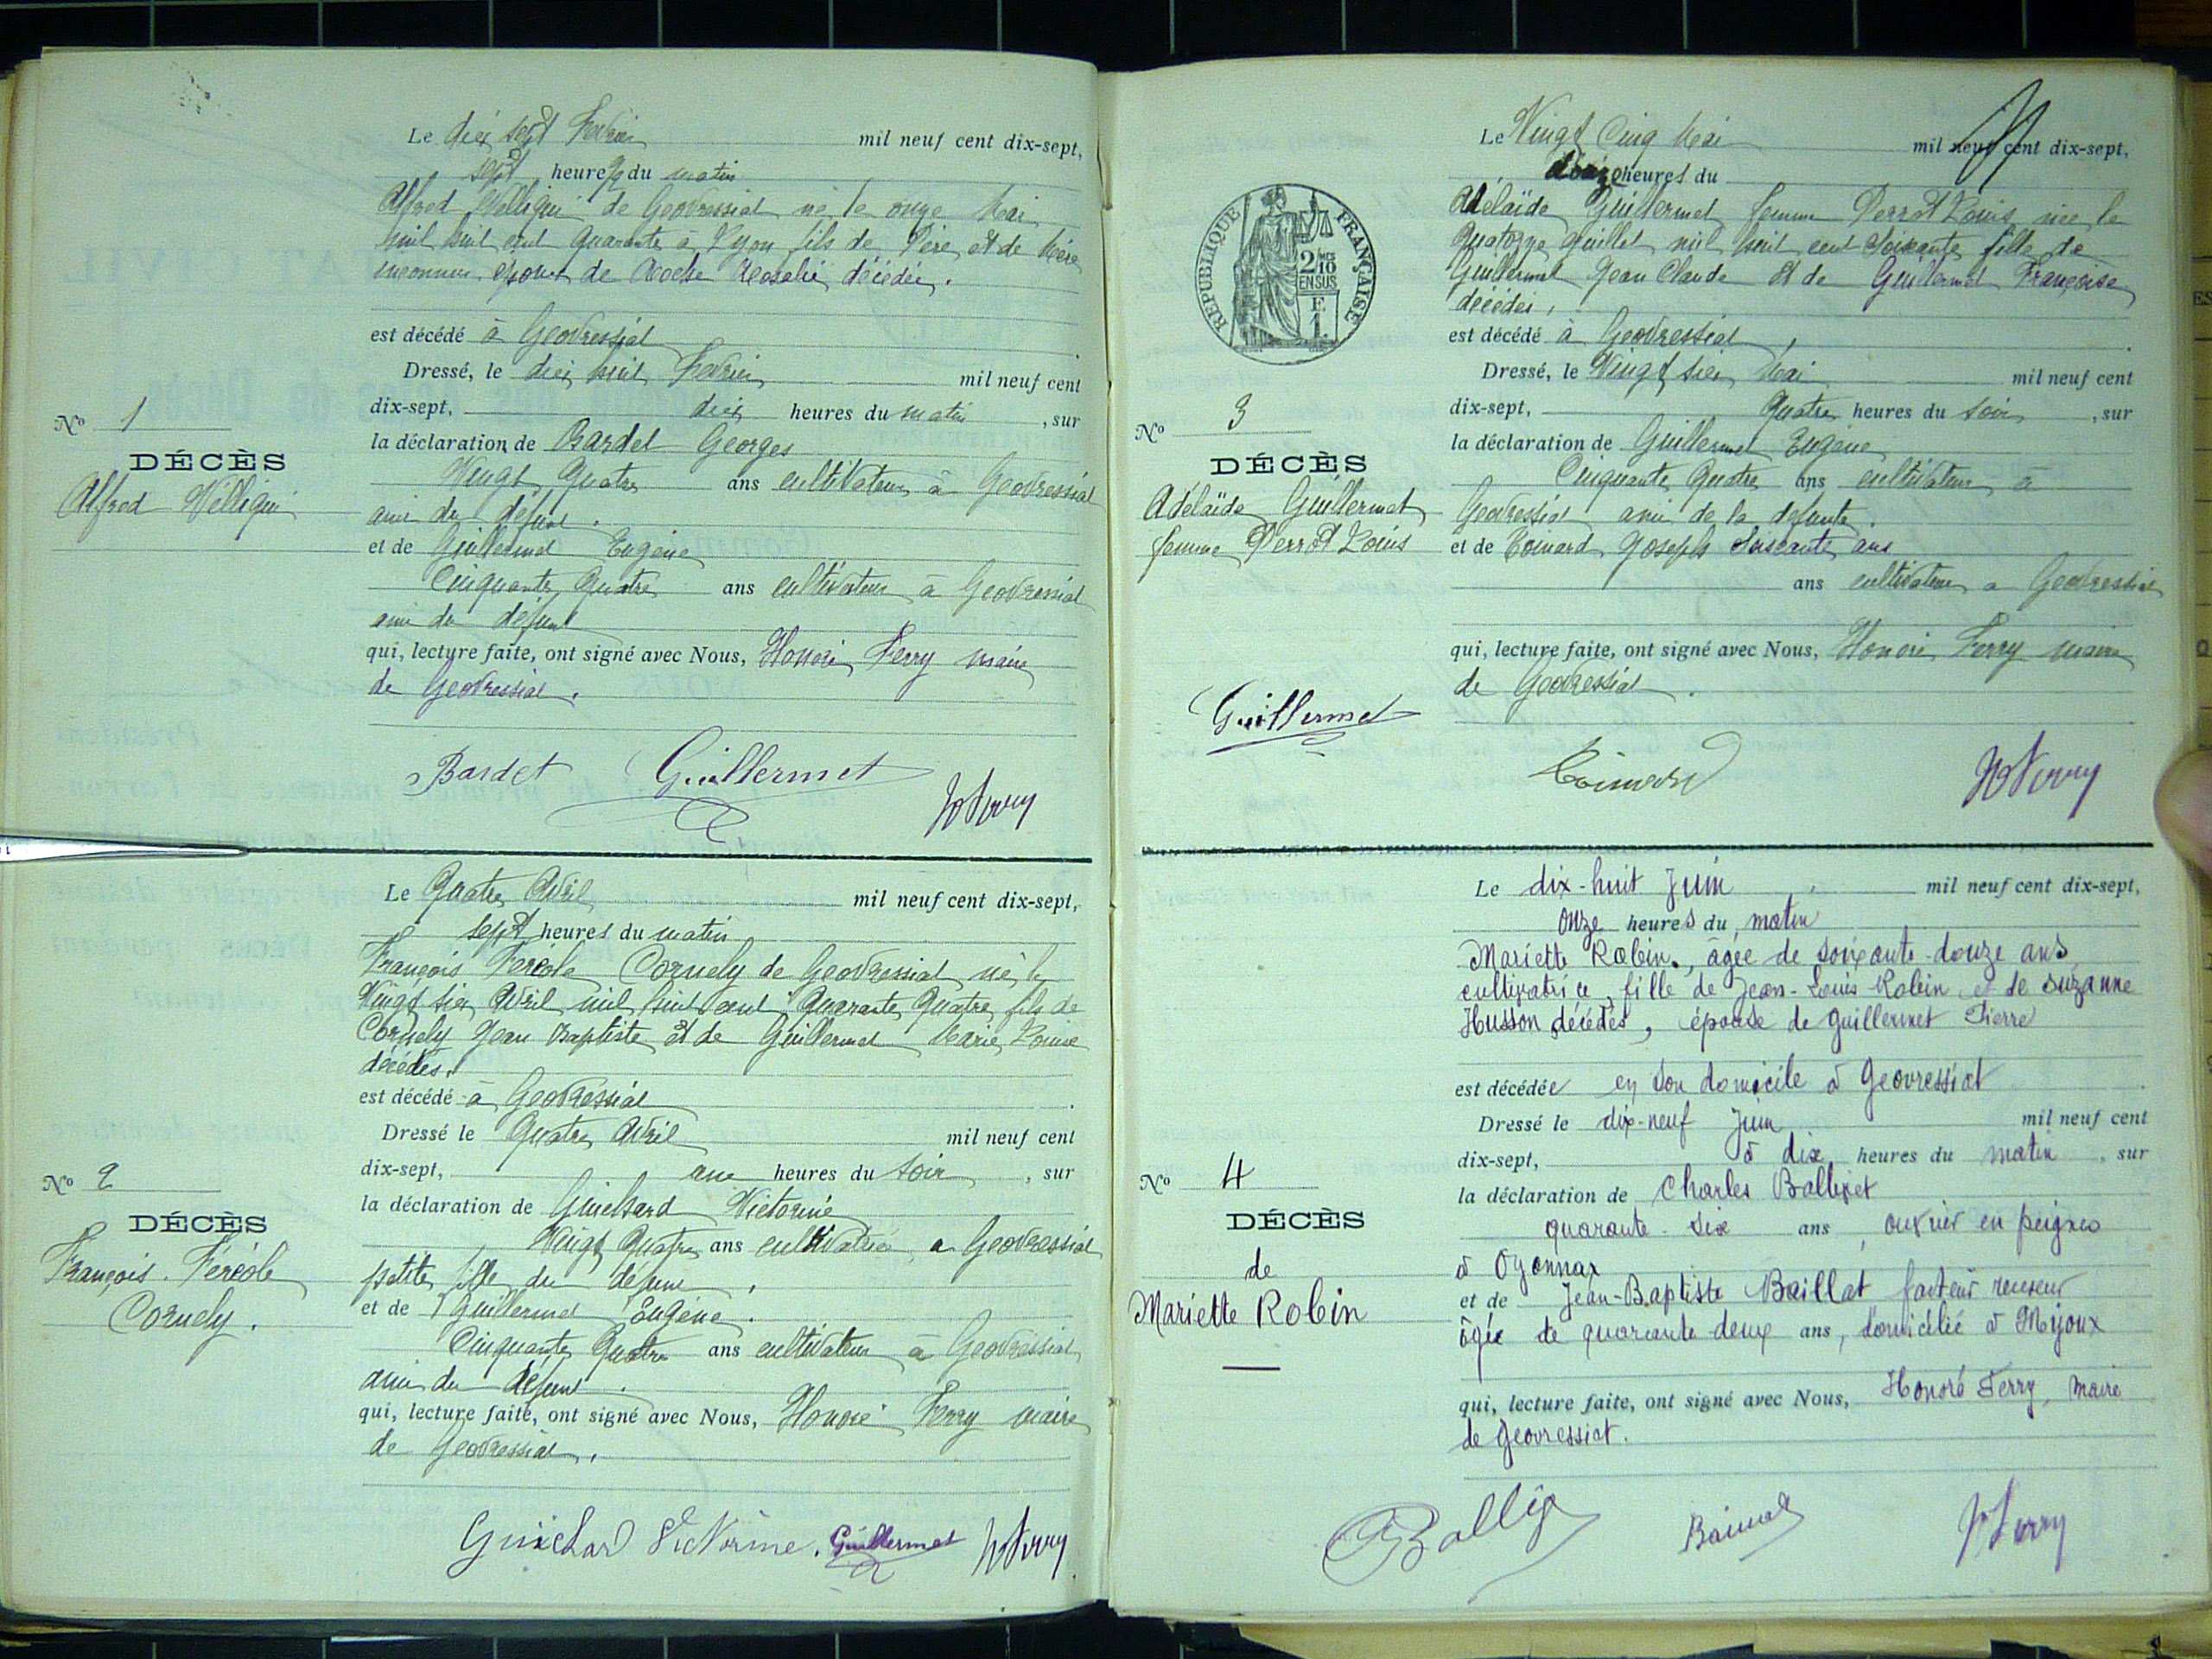 Le dix sept Février mil neuf cent dix-sept,
sept heures du matin
Alfred Velligui de Geovressiat né le onze Mai
mil huit cent quarante à Lyon fils de Père et de Mère
inconnus époux de Roche Rosalie décédée.
est décédé à Geovressiat
Dressé, le dix huit Février mil neuf cent
dix-sept, dix heures du matin, sur
la déclaration de Bardet Georges
Vingt Quatre ans cultivateur à Geovressiat
ami du défunt.
et de Guillermet Eugène
Cinquante Quatre ans cultivateur à Geovressiat
ami du défunt
qui, lecture faite, ont signé avec Nous, Honoré Ferry maire
de Geovressiat.
Bardet Guillermet H Ferry
No 1
DÉCÈS
Alfred Velligui
Le Quatre Avril mil neuf cent dix-sept,
sept heures du matin
François Féréole Cornely de Geovressiat né le
Vingt six Avril mil huit cent Quarante Quatre fils de
Cornely Jean Baptiste et de Guillermet Marie Louise
décédés.
est décédé à Geovressiat
Dressé le Quatre Avril mil neuf cent
dix-sept, une heures du soir, sur
la déclaration de Guichard Victorine
Vingt Quatre ans cultivatrice a Geovressiat
petite fille du defunt.
et de Guillermet Eugène.
Cinquante Quatre ans cultivateur à Geovressiat
ami du défunt.
qui, lecture faite, ont signé avec Nous, Honoré Ferry maire
de Geovressiat.
Guichard Victorine. Guillermet H Ferry
No 2
DÉCÈS
François Féréole
Cornely.
RÉPUBLIQUE FRANÇAISE
2/10
EN SUS
F
1.
Le Vingt Cinq Mai mil neuf cent dix-sept,
heures du
Adélaïde Guillermet femme Perrot Louis née le
Quatorze Juillet mil huit cent Soixante fille de
Guillermet Jean Claude et de Guillermet Françoise
décédés,
est décédé à Geovressiat
Dressé, le Vingt six Mai mil neuf cent
dix-sept, Quatre heures du soir, sur
la déclaration de Guillermet Eugène
Cinquante Quatre ans cultivateur à
Geovressiat ami de la defunte.
et de Coinard Joseph Soixante ans
ans cultivateur a Geovressiat
qui, lecture faite, ont signé avec Nous, Honoré Ferry maire
de Geovressiat.
Guillermet Coinard H Ferry
No 3
DÉCÈS
Adélaïde Guillermet
femme Perrot Louis
Le dix-huit Juin mil neuf cent dix-sept,
onze heures du matin
Mariette Robin, âgée de soixante-douze ans
cultivatrice, fille de Jean-Louis Robin et de Suzanne
Husson décédés, épouse de Guillermet Pierre
est décédée en son domicile à Geovressiat
Dressé le dix-neuf Juin mil neuf cent
dix-sept, à dix heures du matin, sur
la déclaration de Charles Ballivet
quarante-six ans, ouvrier en peignes
à Oyonnax
et de Jean-Baptiste Baillat facteur receveur
âgée de quarante-deux ans, domicilié à Mijoux
qui, lecture faite, ont signé avec Nous, Honoré Ferry, Maire
de Geovressiat.
H Ferry
No 4
DÉCÈS
de
Mariette Robin